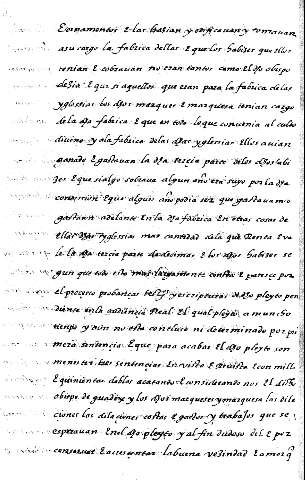 E ornamentos E las hazian y edificauan y tomauan
asu cargo la fabrica dellas E que los habizes que ellos
tenian E cobrauan no eran tantos como El dho obispo
dezia E que si aquellos que eran para la fabrica de las
yglesias los dhos marques E marquesa tenian cargo
de la dha fabrica E que en todo lo que convenia al culto
divino y ala fabrica de las dhas yglesias Ellos avian
gastado E gastavan la dha tercia parte de los dhos habi
zes E que si algo sobrava algun año era suyo por la dha
concesion E que algun año podia ser que gastavan o
gastasen adelante En la dha fabrica En otras cosas de
ellas dhas yglesias mas cantidad de la que Renta E va
le la dha tercia parte de diezmos E los dhos habizes se
gun que todo esto mas largamente consta E parece por
el processo probanças y escripturas del dho pleyto pen
diente En la audiencia Real El qual pleyto a mucho
tiempo y aun no esta concluso ni determinado por pri
mera sentencia E que para acabar El dho pleyto son
menester tres sentencias En vista E Revista con mill
E quinientas doblas acatando E considerando nos El dho
obispo de guadix y los dhos marques y marquesa las dila
ciones costas E gastos y trabajos que se
esperavan En el dho pleyto y al fin dudoso del E por
conservar E acrescentar la buena vezindad E amor q